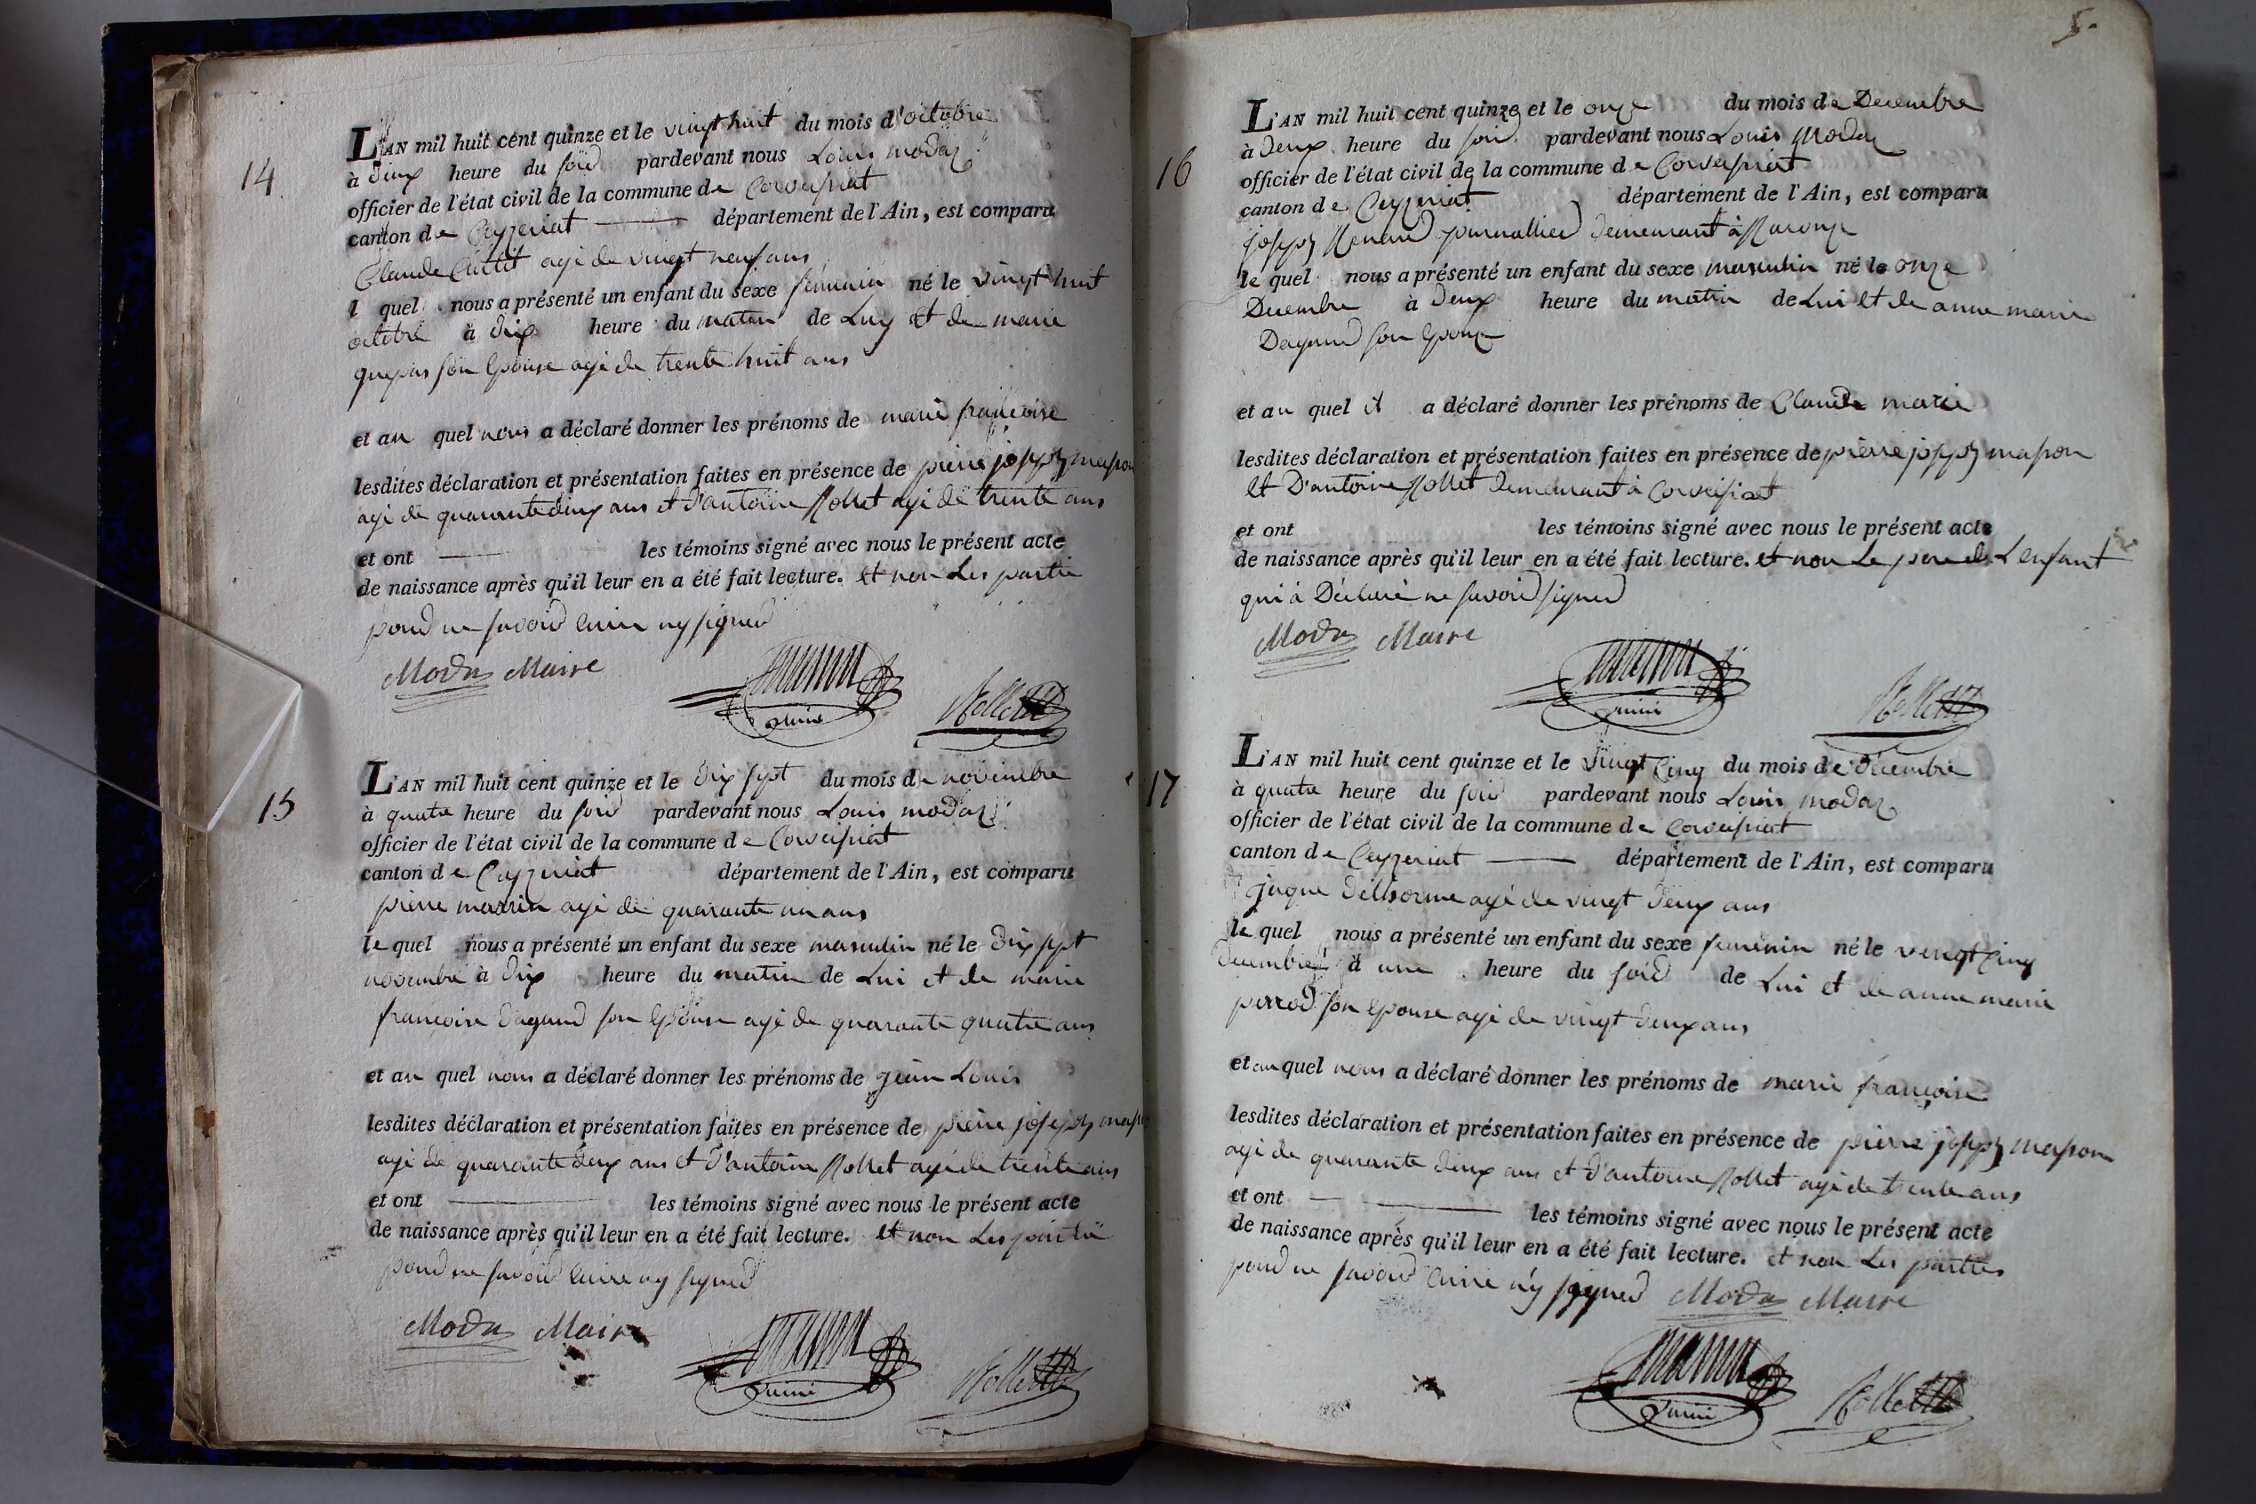 14
L'AN mil huit cent quinze et le vingt huit du mois d'octobre
à deux heure du soir pardevant nous Louis modaz
officier de l'état civil de la commune de Corveisiat
canton de Ceyzeriat département de l'Ain, est comparu
Claude agé de vingt neuf ans
l quel nous a présenté un enfant du sexe feminin né le vingt huit
octobre à dix heure du matin de Luy et de marie
son Epouse agé de trente huit ans
et au quel nous a déclaré donner les prénoms de marie françoise
lesdites déclaration et présentation faites en présence de pierre joseph masson
agé de quarante deux ans et d'antoine Rollet agé de trente ans
et ont les témoins signé avec nous le présent acte
de naissance après qu'il leur en a été fait lecture. et non Les partie
pour ne savoir Ecrire ny signer
Modas Maire
masson
Rollet
15
L'AN mil huit cent quinze et le dix sept du mois de novembre
à quatre heure du soir pardevant nous Louis modaz
officier de l'état civil de la commune de Corveisiat
canton de Ceyzeriat département de l'Ain, est comparu
pierre agé de quarante un ans
le quel nous a présenté un enfant du sexe masculin né le dix sept
novembre à dix heure du matin de Lui et de marie
françoise dagand son Epouse agé de quarante quatre ans
et au quel nous a déclaré donner les prénoms de jean Louis
lesdites déclaration et présentation faites en présence de pierre joseph masson
agé de quarante deux ans et d'antoine Rollet agé de trente ans
et ont les témoins signé avec nous le présent acte
de naissance après qu'il leur en a été fait lecture. et non Les partie
pour ne savoir Ecrire ny signer
Modas Maire
masson
Rollet
5.
16
L'AN mil huit cent quinze et le onze du mois de Decembre
à Deux heure du soir pardevant nous Louis Modaz
officier de l'état civil de la commune de Corveisiat
canton de Ceyzeriat département de l'Ain, est comparu
joseph Renaud journallier demeurant à
le quel nous a présenté un enfant du sexe masculin né le onze
Decembre à deux heure du matin de Lui et de anne marie
Dagand son Epouze
et au quel il a déclaré donner les prénoms de Claude marie
lesdites déclaration et présentation faites en présence de pierre joseph masson
et D'antoine Rollet demeurant à Corveisiat
et ont les témoins signé avec nous le présent acte
de naissance après qu'il leur en a été fait lecture. et non Le pere de L'enfant
qui à Déclaré ne savoir signer
Modas Maire
masson
Rollet
17
L'AN mil huit cent quinze et le vingt Cinq du mois de décembre
à quatre heure du soir pardevant nous Louis modaz
officier de l'état civil de la commune de Corveisiat
canton de Ceyzeriat département de l'Ain, est comparu
jaque délhorme agé de vingt deux ans
le quel nous a présenté un enfant du sexe feminin né le vingt Cinq
decembre à une heure du soir de Lui et de anne marie
perrod son epouse agé de vingt deux ans
et au quel nous a déclaré donner les prénoms de marie françoise
lesdites déclaration et présentation faites en présence de pierre joseph masson
agé de quarante deux ans et d'antoine Rollet agé de trente ans
et ont les témoins signé avec nous le présent acte
de naissance après qu'il leur en a été fait lecture. et non Les parties
pour ne savoir Ecrire ny signer Modas Maire
masson
Rollet